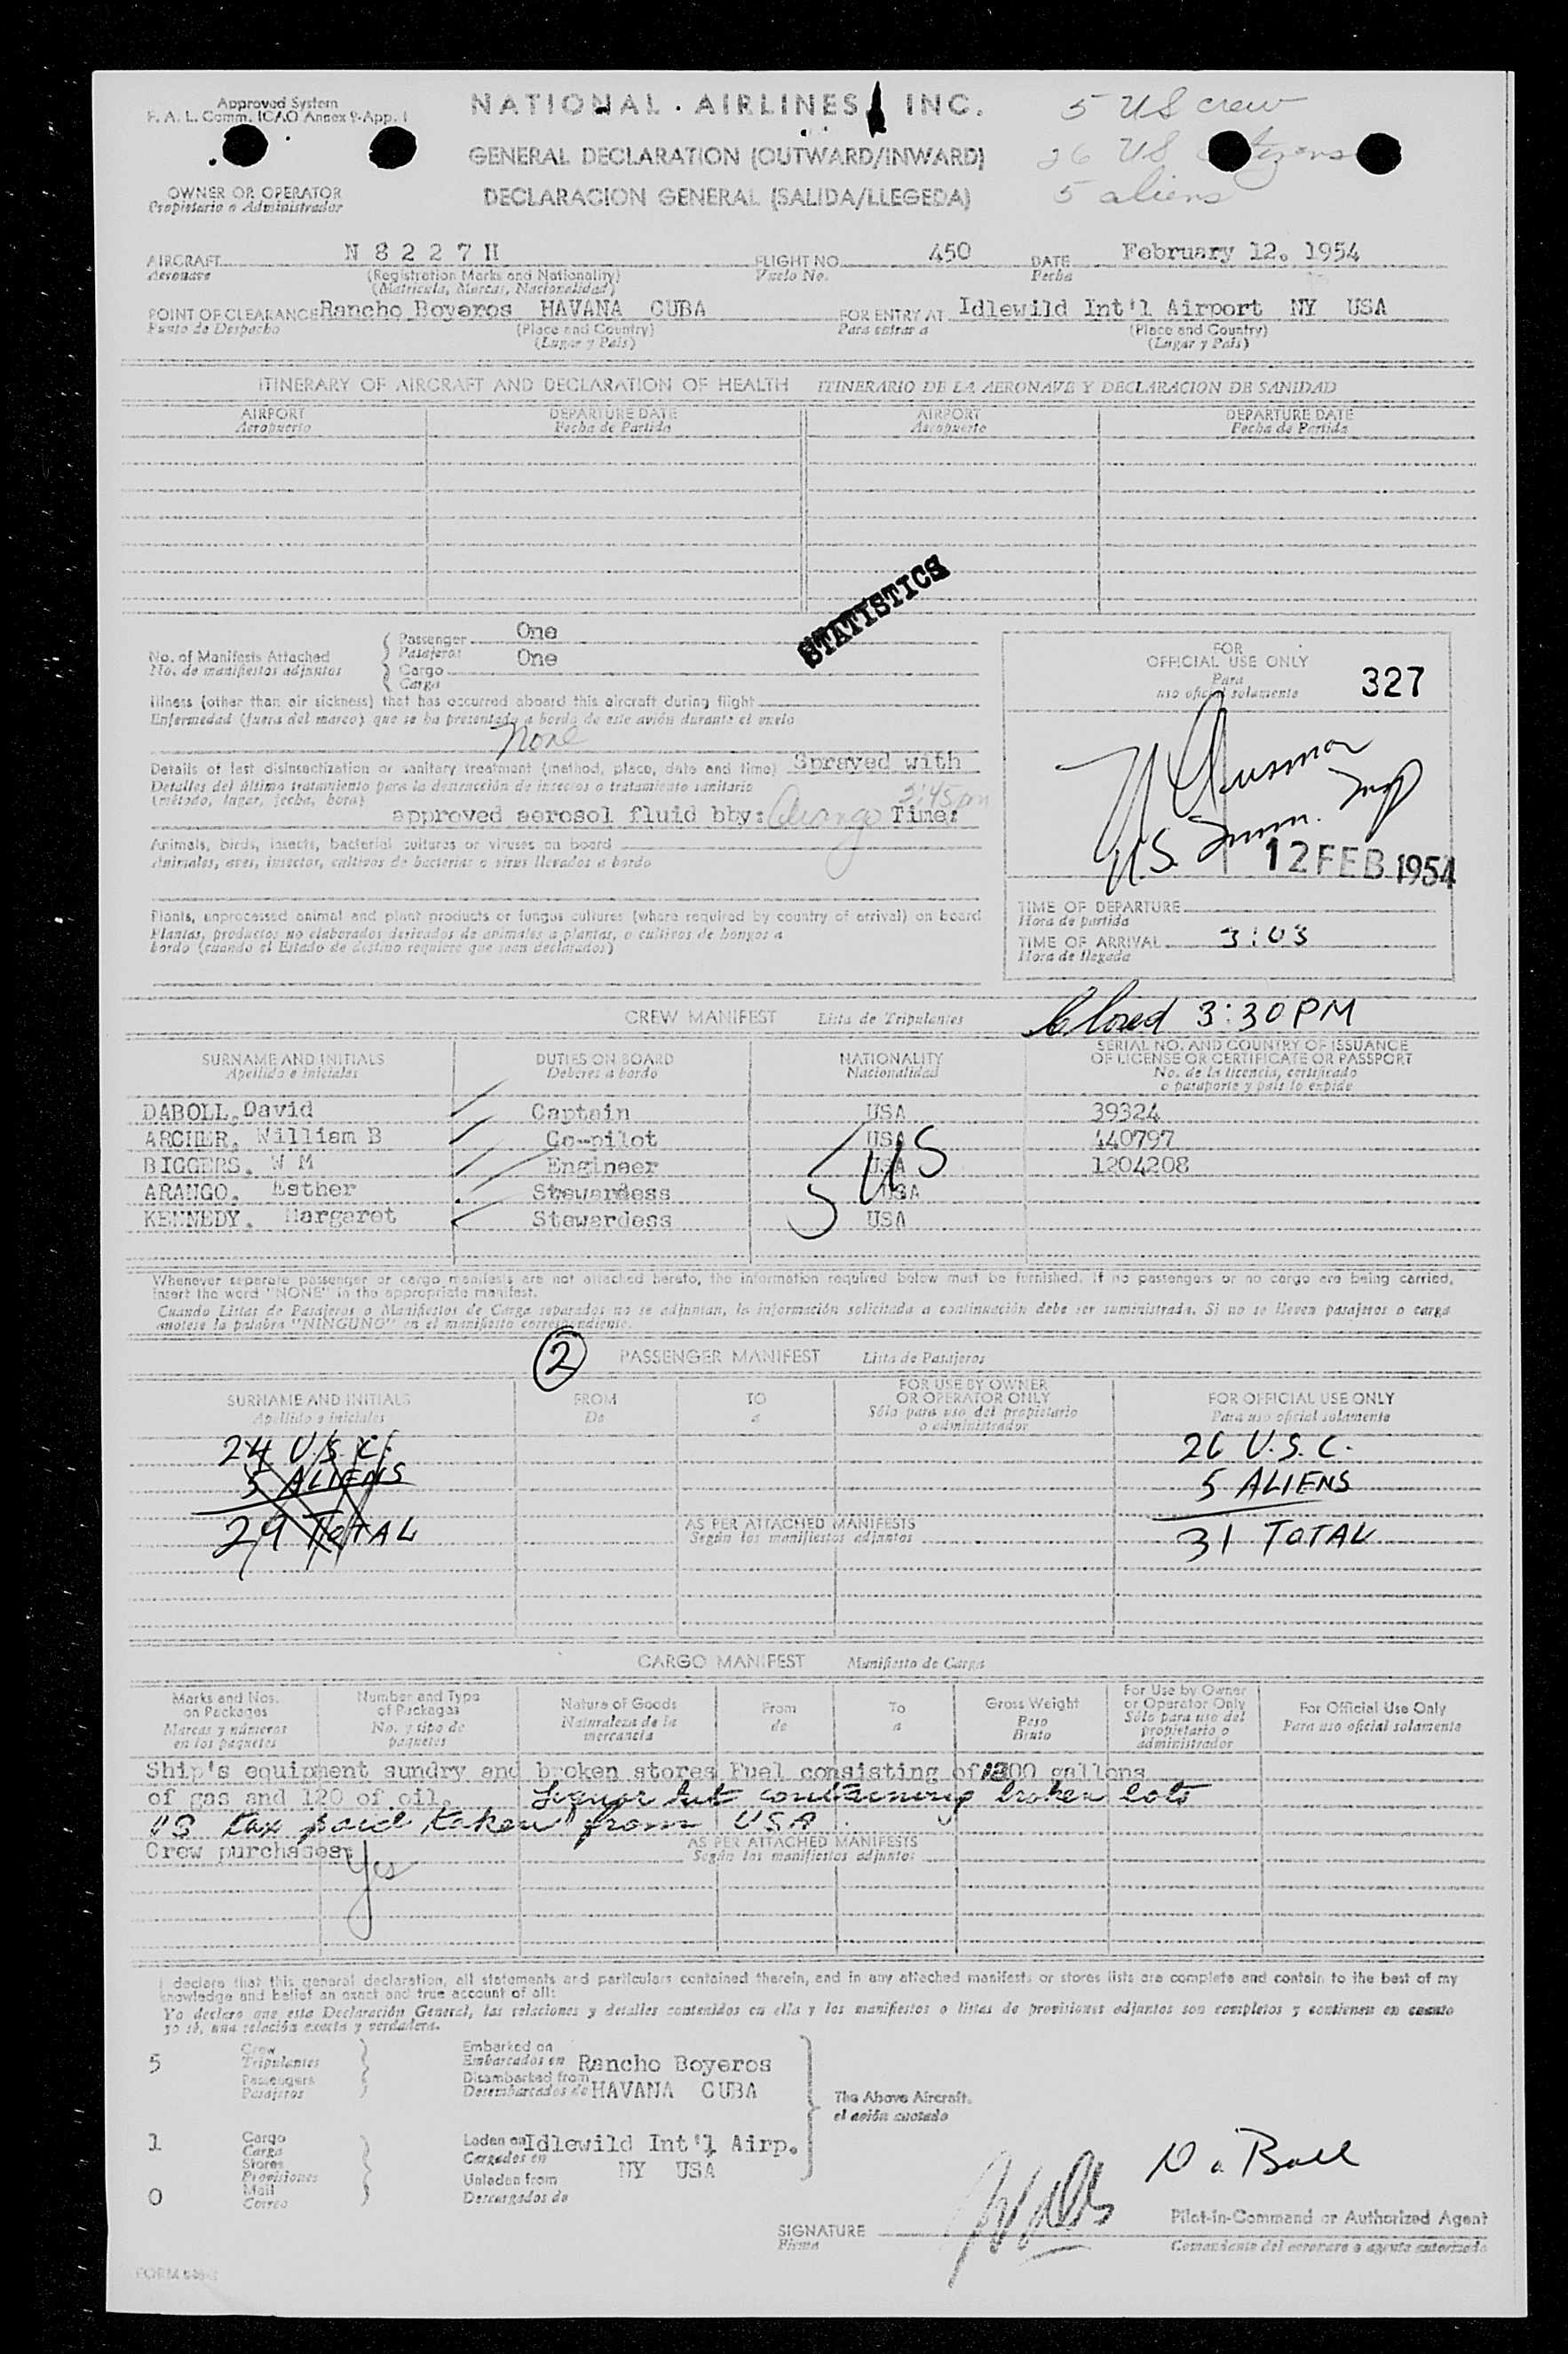 Approved System
F. A. L. Comm. ICAO Annex 9-App. 1
NATIONAL AIRLINES, INC.
5 US crew
26 US
5 aliens
GENERAL DECLARATION (OUTWARD/INWARD)
DECLARACION GENERAL (SALIDA/LLEGEDA)
OWNER OR OPERATOR
Propietario o Administrador
AIRCRAFT N 8 2 2 7 H FLIGHT NO. 450 DATE February 12. 1954
Aeronave (Registration Marks and Nationality) Vuelo No. Fecha
(Matricula, Marcas, Nacionalidad)
POINT OF CLEARANCE Rancho Boyeros HAVANA CUBA FOR ENTRY AT Idlewild Int'l Airport NY USA
Punto de Despacho (Place and Country) Para entrar a (Place and Country)
(Lugar y País) (Lugar y País)
ITINERARY OF AIRCRAFT AND DECLARATION OF HEALTH ITINERARIO DE LA AERONAVE Y DECLARACION DE SANIDAD
AIRPORT DEPARTURE DATE AIRPORT DEPARTURE DATE
Aeropuerto Fecha de Partida Aeropuerto Fecha de Partida
STATISTICS
No. of Manifests Attached
No. de manifiestos adjuntos
Passenger One
Pasajeros
Cargo One
Carga
Illness (other than air sickness) that has occurred aboard this aircraft during flight
Enfermedad (fuera del mareo) que se ha presentado a bordo de este avión durante el vuelo
None
Details of last disinsectization or sanitary treatment (method, place, date and time) Sprayed with
Detalles del último tratamiento para la destrucción de insectos o tratamiento sanitario
(método, lugar, fecha, hora)
approved aerosol fluid bby: Arango Time: 2:45 pm
Animals, birds, insects, bacterial cultures or viruses on board
Animales, aves, insectos, cultivos de bacterias o virus llevados a bordo
Plants, unprocessed animal and plant products or fungus cultures (where required by country of arrival) on board
Plantas, productos no elaborados derivados de animales o plantas, o cultivos de hongos a
bordo (cuando el Estado de destino requiere que sean declarados)
FOR
OFFICIAL USE ONLY
Para
uso oficial solamente
327
U.S. Imm. Insp
12 FEB 1954
TIME OF DEPARTURE
Hora de partida
TIME OF ARRIVAL 3:03
Hora de llegada
Closed 3:30 PM
CREW MANIFEST Lista de Tripulantes
SURNAME AND INITIALS DUTIES ON BOARD NATIONALITY SERIAL NO. AND COUNTRY OF ISSUANCE
Apellido e iniciales Deberes a bordo Nacionalidad OF LICENSE OR CERTIFICATE OR PASSPORT
No. de la licencia, certificado
o pasaporte y país lo expide
DABOLL, David Captain USA 39324
ARCHER, William B Co-pilot USA 440797
BIGGERS, W M Engineer USA 1204208
ARANGO, Esther Stewardess USA
KENNEDY, Margaret Stewardess USA
5 US
Whenever separate passenger or cargo manifests are not attached hereto, the information required below must be furnished. If no passengers or no cargo are being carried,
insert the word "NONE" in the appropriate manifest.
Cuando Listas de Pasajeros o Manifiestos de Carga separados no se adjuntan, la información solicitada a continuación debe ser suministrada. Si no se lleven pasajeros o carga
anótese la palabra "NINGUNO" en el manifiesto correspondiente.
2 PASSENGER MANIFEST Lista de Pasajeros
SURNAME AND INITIALS FROM TO FOR USE BY OWNER FOR OFFICIAL USE ONLY
Apellido e iniciales De a OR OPERATOR ONLY Para uso oficial solamente
Sólo para uso del propietario
o administrador
24 U.S.C. 26 U.S.C.
5 ALIENS 5 ALIENS
29 TOTAL 31 TOTAL
AS PER ATTACHED MANIFESTS
Según los manifiestos adjuntos
CARGO MANIFEST Manifiesto de Carga
Marks and Nos. on Packages Number and Type of Packages Nature of Goods From To Gross Weight For Use by Owner or Operator Only For Official Use Only
Marcas y números en los paquetes No. y tipo de paquetes Naturaleza de la mercancía de a Peso Bruto Sólo para uso del propietario o administrador Para uso oficial solamente
Ship's equipment sundry and broken stores Fuel consisting of 1300 gallons
of gas and 120 of oil. Liquor kit containing broken lots
US tax paid taken from USA.
Crew purchases: Yes
AS PER ATTACHED MANIFESTS
Según los manifiestos adjuntos
I declare that this general declaration, all statements and particulars contained therein, and in any attached manifests or stores lists are complete and contain to the best of my
knowledge and belief an exact and true account of all:
Yo declaro que esta Declaración General, las relaciones y detalles contenidos en ella y los manifiestos o listas de provisiones adjuntos son completos y contienen en cuanto
yo sé, una relación exacta y verdadera.
5 Crew Embarked on
Tripulantes Embarcados en Rancho Boyeros
Passengers Disembarked from
Pasajeros Desembarcados de HAVANA CUBA
The Above Aircraft.
el avión anotado
1 Cargo Laden on Idlewild Int'l Airp.
Carga Cargados en
Stores NY USA
Provisiones Unladen from
0 Mail Descargados de
Correo
SIGNATURE
Firma
Pilot-in-Command or Authorized Agent
Comandante del aeronave o agente autorizado